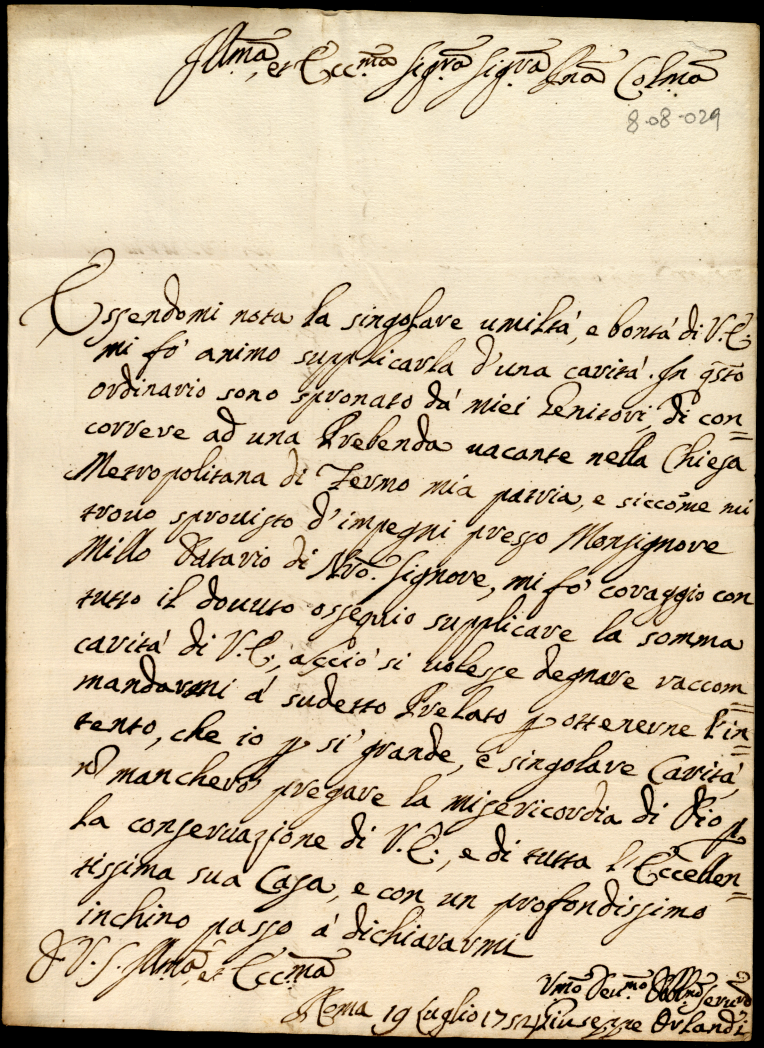 Illma, et Eccma Sigra Sigra Pna Colma
8-08-029
Essendomi nota la singolare umiltà, e bontà di V.E.
mi fò animo supplicarla d'una carità. In qsto
ordinario sono spronato dà miei Genitori, di con=
correre ad una Prebenda vacante nella Chiesa
Metropolitana di Fermo mia patria, e siccome mi
trovo sprovisto d'impegni presso Monsignore
Millo Datario di Nro. Signore, mi fò coraggio con
tutto il dovuto ossequio supplicare la somma
carità di V.E., acciò si volesse degnare raccom=
mandarmi à sudetto Prelato p ottenerne l'in=
tento, che io p sì grande, e singolare Carità,
nō mancherò pregare la misericordia di Dio p
la conservazione di V.E., e di tutta l'Eccellen=
tissima sua Casa, e con un profondissimo
inchino passo à dichiararmi
D V.S. Illma, et Eccma
Vmo Devmo Obblmo Servre
Roma 19 Luglio 1752 Giuseppe Orlandi